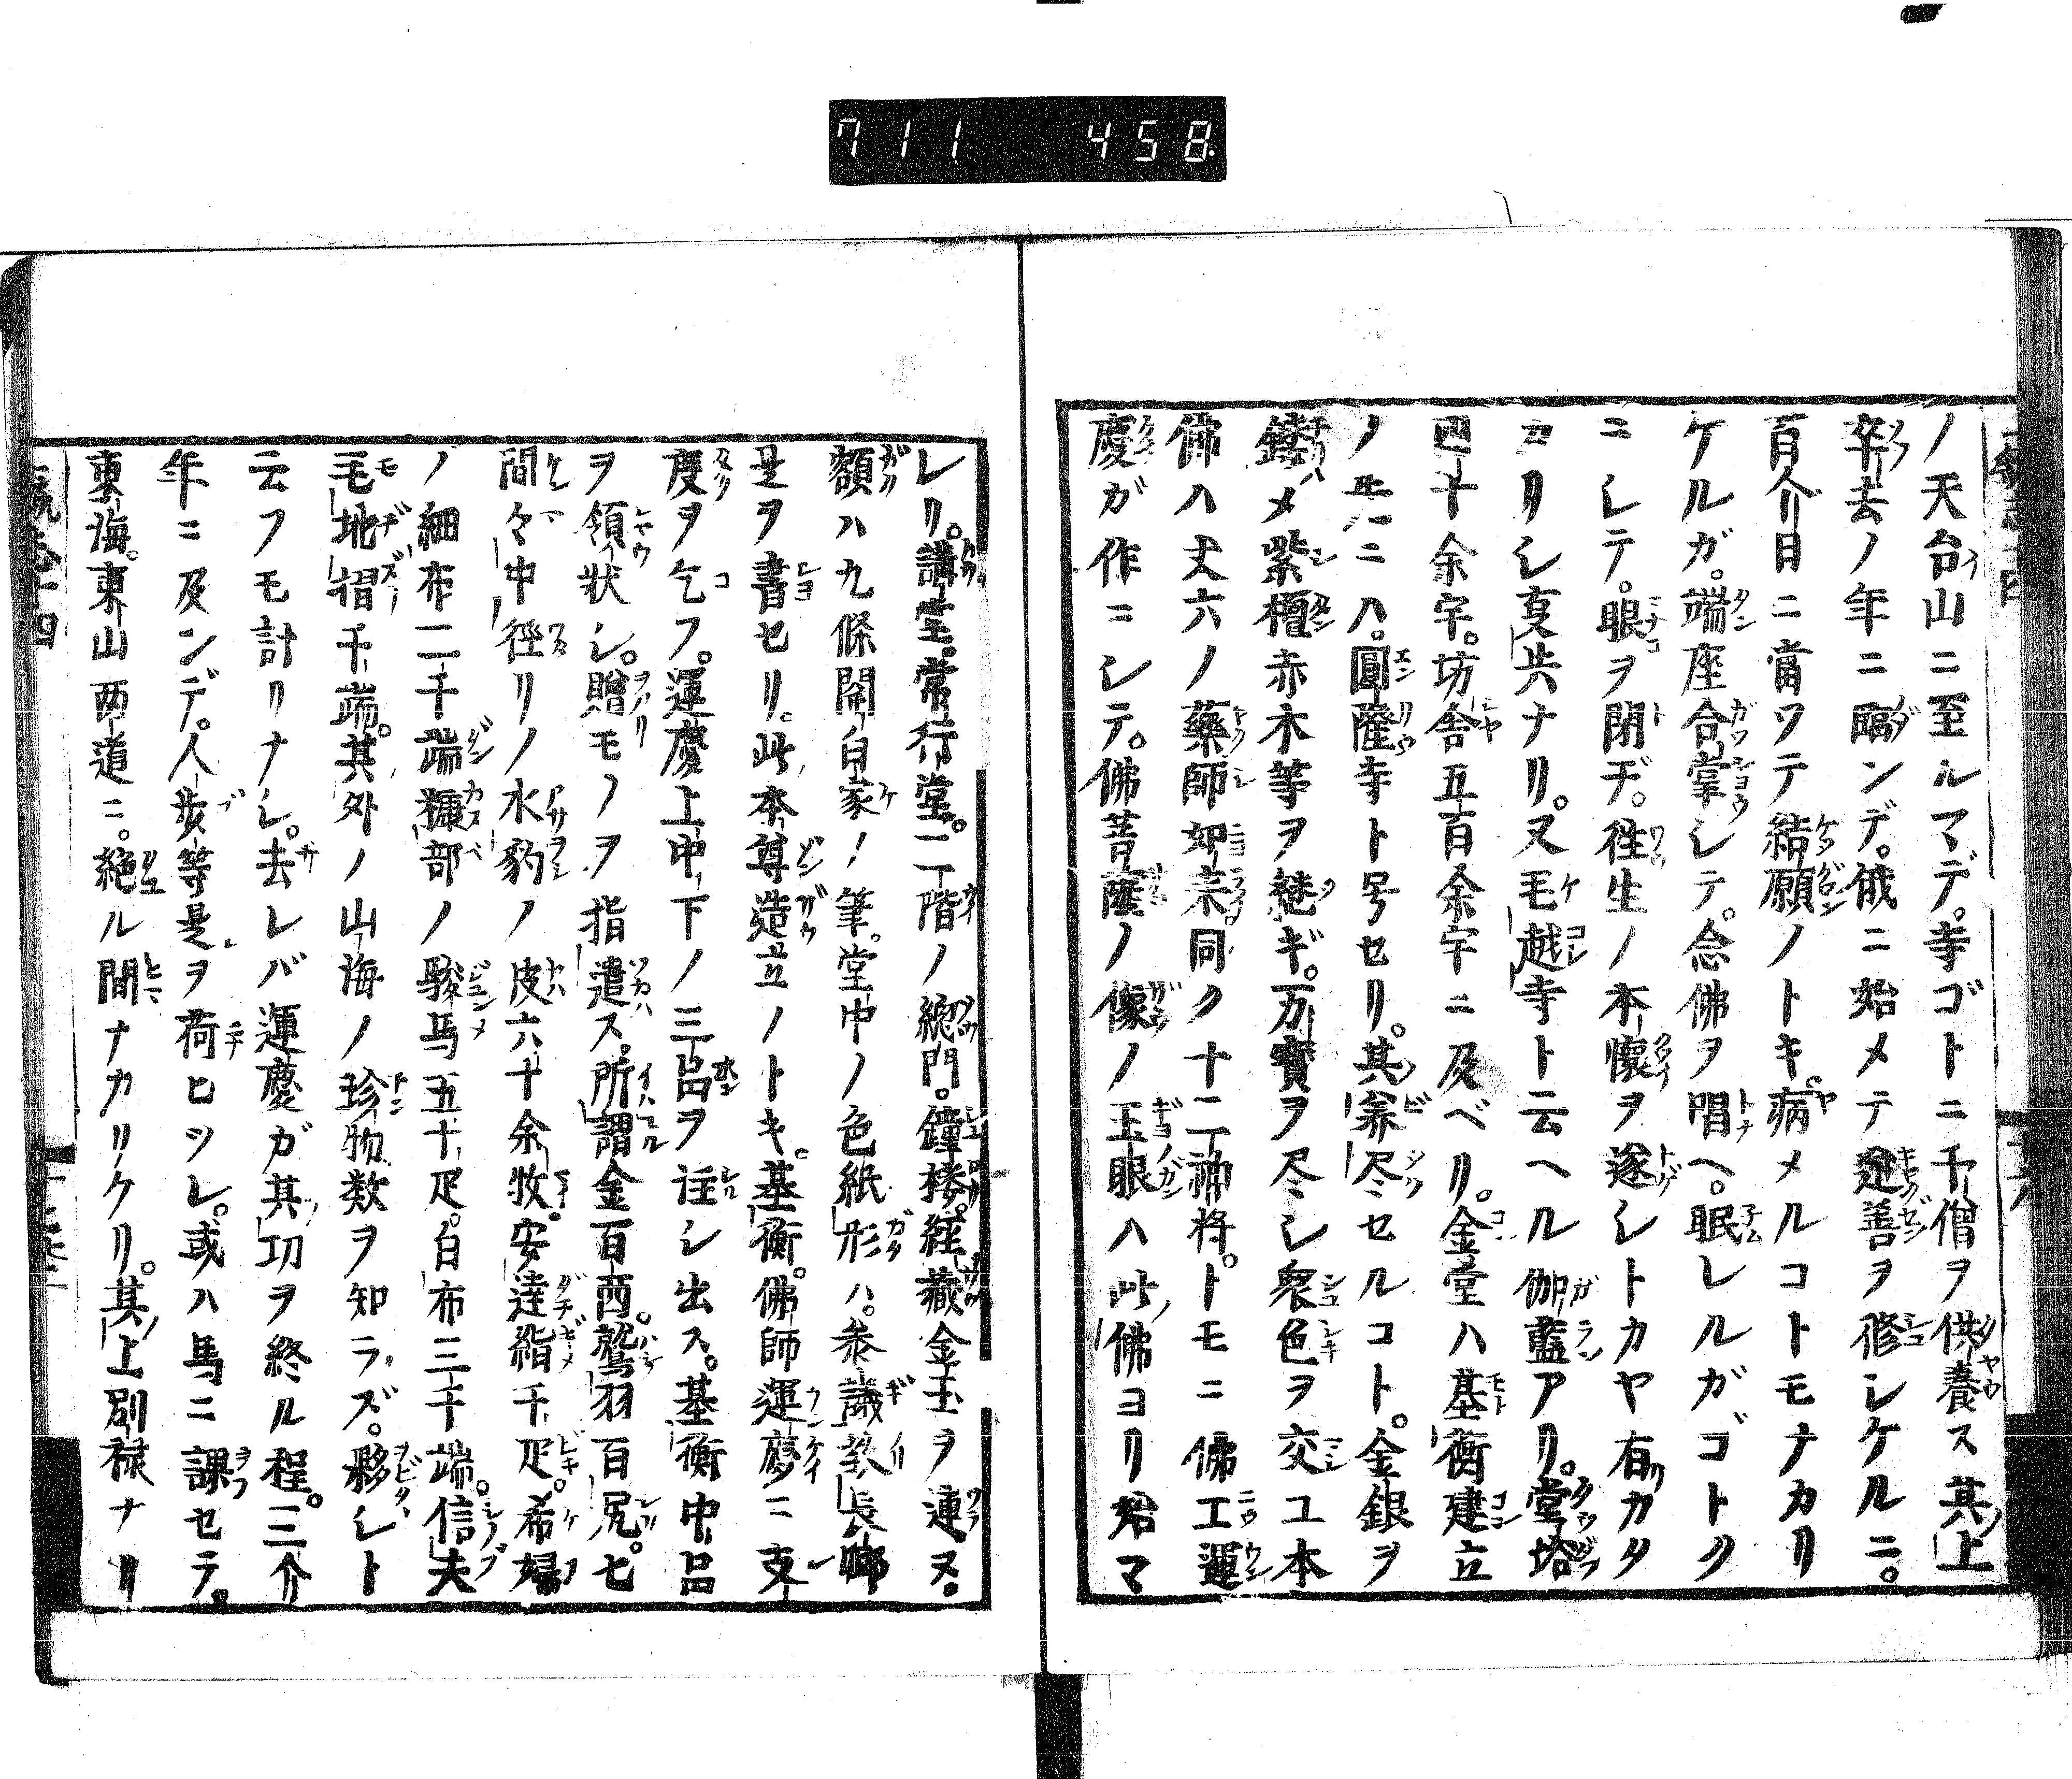 711 458
ノ天台山ニ至ルマデ。寺ゴトニ千僧ヲ供養ス其上
卒去ノ年ニ臨ンデ。俄ニ始メテ逆善ヲ修シケルニ。
百介日ニ當ツテ結願ノトキ。病メルコトモナカリ
ケルガ。端座合掌シテ。念佛ヲ唱ヘ。眠レルガゴトク
ニシテ。眼ヲ閉ヂ。往生ノ本懐ヲ遂シトカヤ有カタ
コリシ支共ナリ。又毛越寺ト云ヘル伽藍アリ。堂塔
四十余宇。坊舎五百余宇ニ及ベリ。金堂ハ基衡建立
ノ ニハ。圓隆寺ト号セリ。其美尽セルコト。金銀ヲ
鏤メ紫檀赤木等ヲ継ギ。万寳ヲ尽シ衆色ヲ交ユ本
佛ハ丈六ノ藥師如来。同ク十二神将。トモニ佛工運
慶ガ作ニシテ。佛菩薩ノ像ノ玉眼ハ此佛ヨリ始マ
レリ。講堂。常行堂。二階ノ總門。鐘楼。経藏金玉ヲ連ヌ。
額ハ九條関白家ノ筆。堂中ノ色紙形ハ。参議教長卿
是ヲ書セリ。此本尊造立ノトキ。基衡。佛師運慶ニ支
度ヲ乞フ。運慶上中下ノ三品ヲ註シ出ス。基衡中品
ヲ領状シ。贈モノヲ指遣ス。所謂金百両。鷲羽百尻。七
間々中徑リノ水豹ノ皮六十余牧。安達絹千疋。希婦
ノ細布二千端糠部ノ駿馬五十疋。白布三千端。信夫
毛地摺千端。其外ノ山海ノ珍物数ヲ知ラズ。夥シト
云フモ計リナシ。去レバ運慶ガ其功ヲ終ル程。三介
年ニ及ンデ。人歩等是ヲ荷ヒツレ。或ハ馬ニ課セテ。
東海。東山両道ニ。絶ル間ナカリケリ。其上別禄ナリ